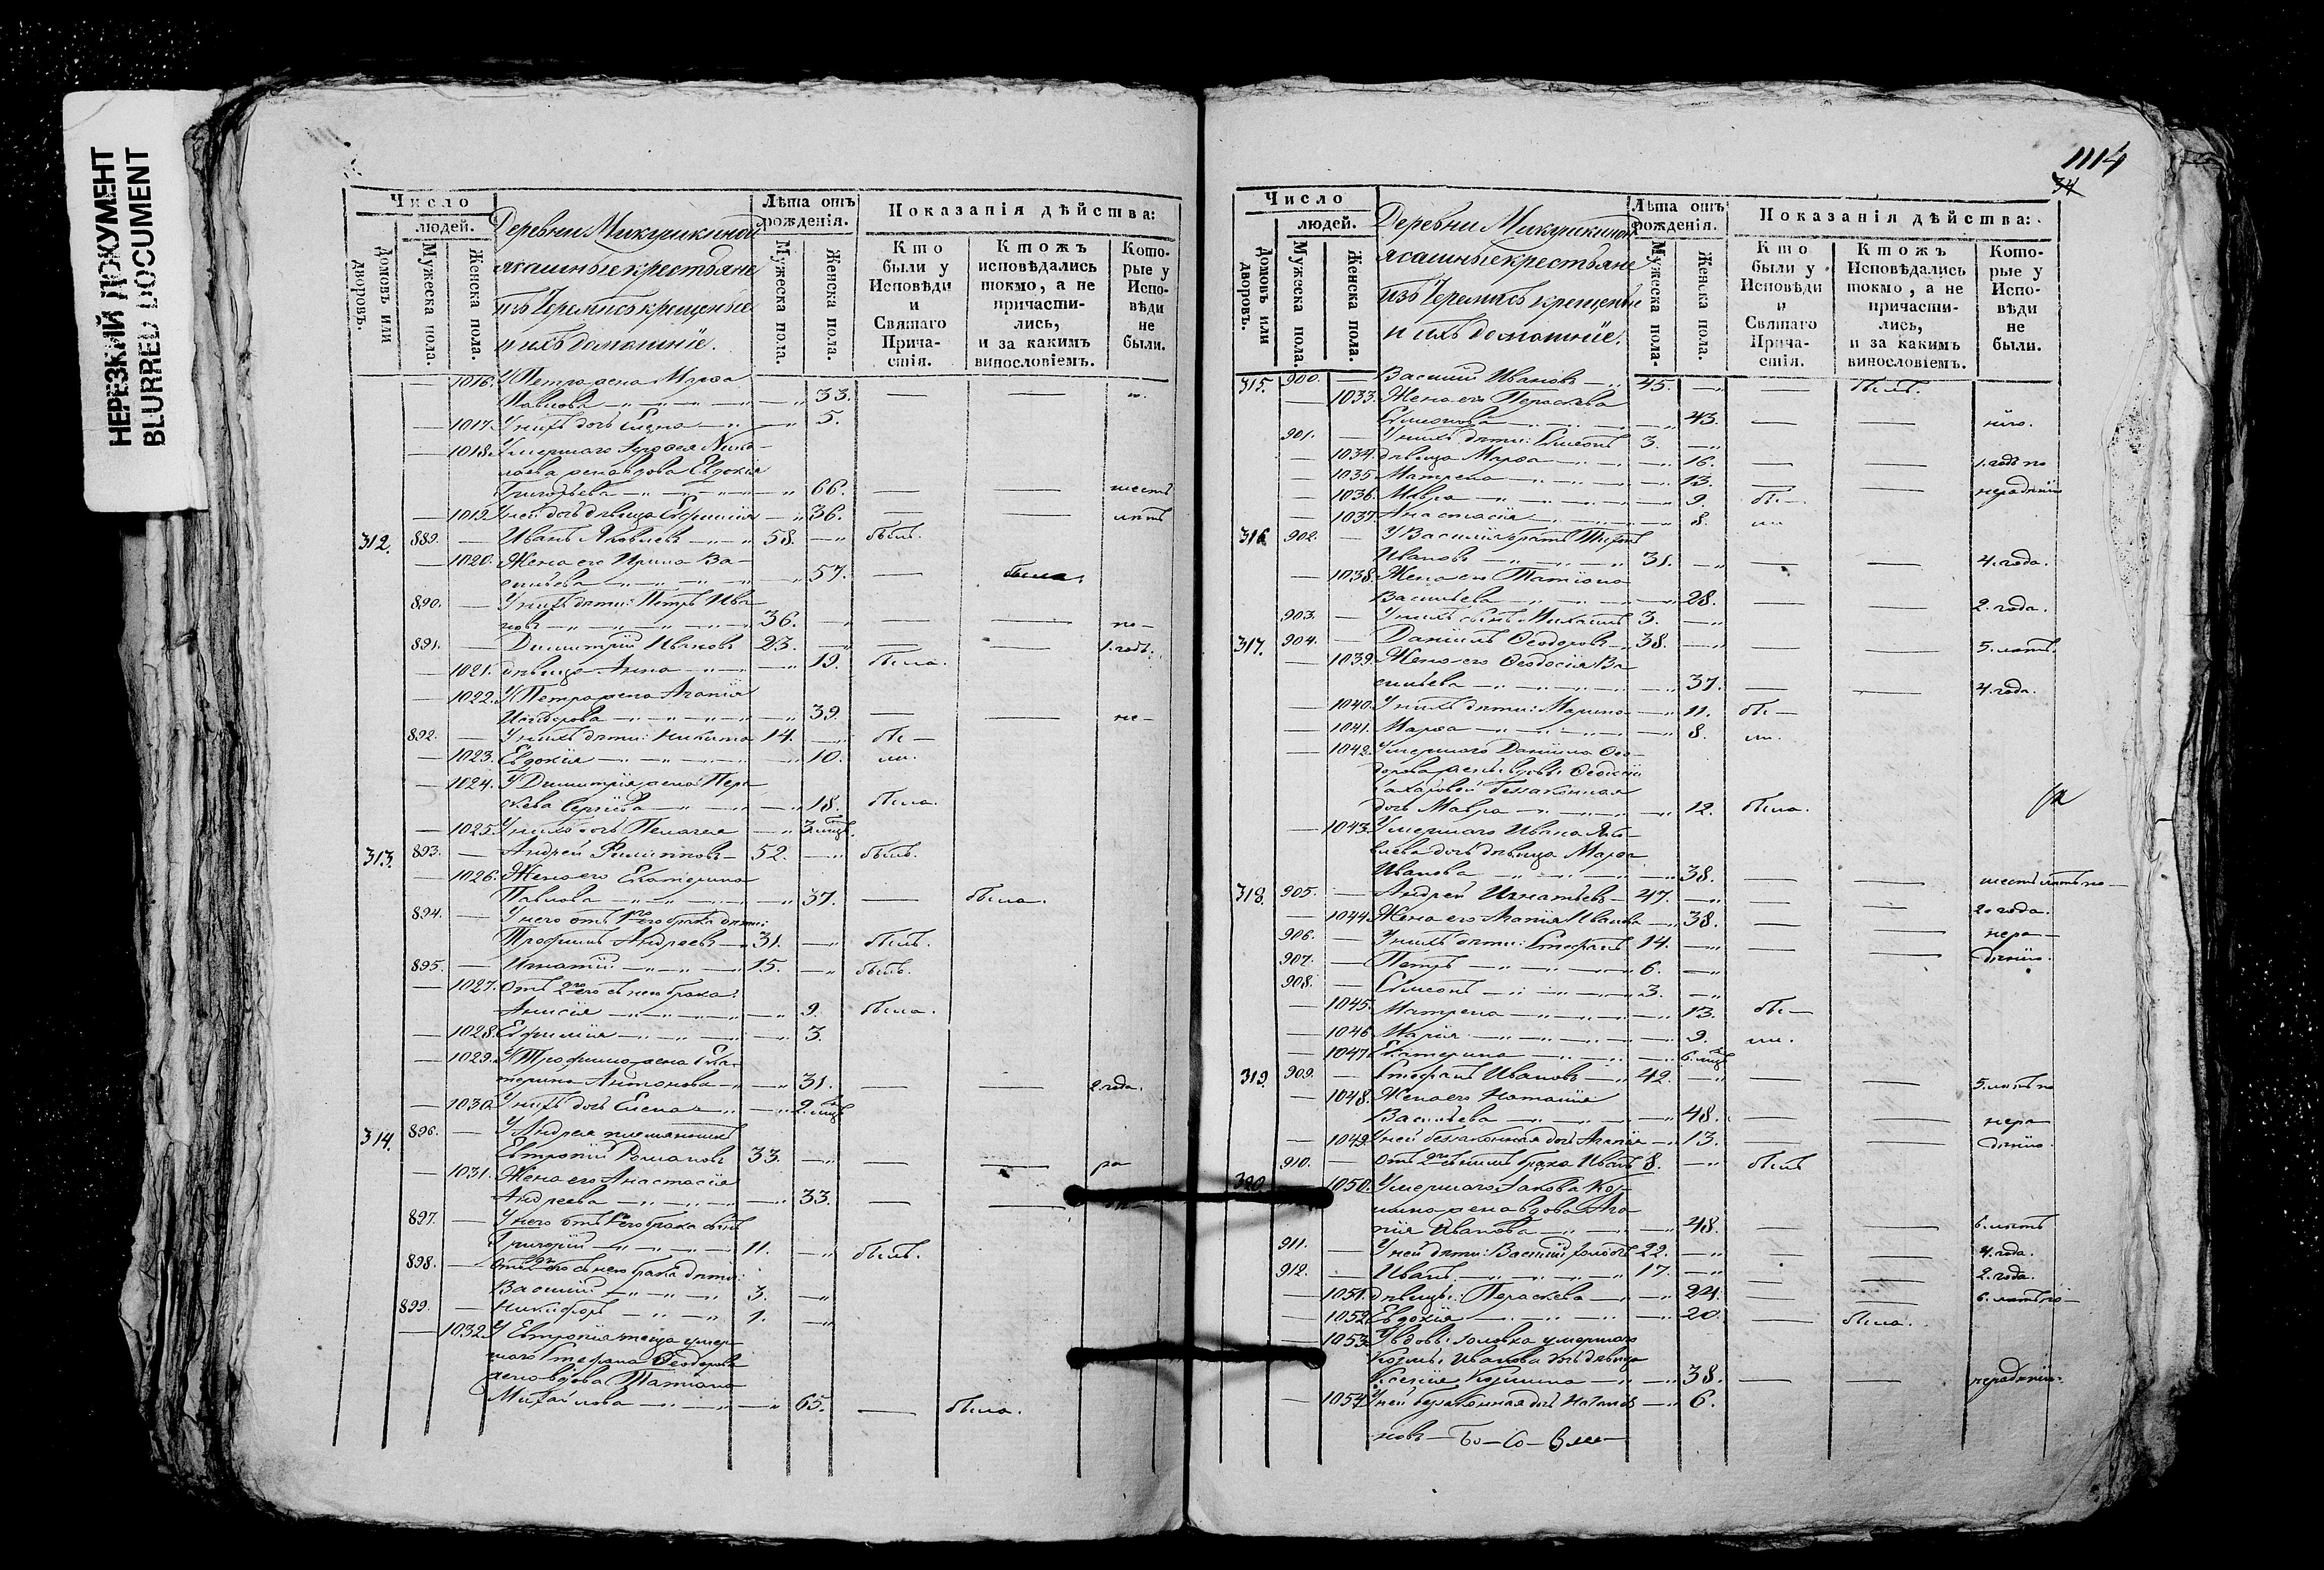 НЕРЕЗКИЙ ДОКУМЕНТ
BLURRED DOCUMENT
Число
людей.
Домовъ или дворовъ.
Мужеска пола.
Женска пола.
Деревни Микучкиной
ясашные крестьяне
изъ Черемисъ крещеные
и ихъ домашніе.
Лѣта отъ рожденія.
Мужеска пола.
Женска пола.
Показанія дѣйства:
Кто были у Исповѣди и Святаго Причастія.
Ктожъ исповѣдались токмо, а не причастились, и за какимъ винословіемъ.
Которые у Исповѣди не были.
1016. У Петра жена Марѳа
Павлова 33.
1017. У нихъ дочь Елена 5.
1018. Умершаго
жена вдова Евдокія
Григорьева 66. шесть
1019. У ней дочь дѣвица Евфимія 36. лѣтъ
312. 889. Иванъ Яковлевъ 58. былъ.
1020. Жена его Ирина Ва-
сильева 57. была.
890. У нихъ дѣти: Петръ Ива
новъ 36. по
891. Димитрій Ивановъ 23. 1. годъ.
1021. дѣвица Анна 19. была.
1022. У Петра жена Агапія
Исидорова 39. не
892. У нихъ дѣти: Никита 14. бы
1023. Евдокія 10. ли.
1024. У Димитрія жена Пара
скева Сергіева 18. была.
1025. У нихъ дочь Пелагея 3. мцъ.
313. 893. Андрей Филипповъ 52. былъ.
1026. Жена его Екатерина
Павлова 37. была.
894. У него отъ 1го брака дѣти:
Трофимъ Андреевъ 31. былъ.
895. Игнатій 15. былъ.
1027. Отъ 2го съ нею брака:
Анисія 9. была.
1028. Евфимія 3.
1029. У Трофима жена Ека
терина Антонова 31. 2 года.
1030. У нихъ дочь Елена 2. мцъ
314. 896. У Андрея племянникъ
Евтропій Романовъ 33. ра
1031. Жена его Анастасія
Андреева 33.
897. У него отъ 1го брака сынъ
Григорій 11. былъ.
898. отъ 2го съ нею брака дѣти:
Василій 3.
899. Никифоръ 1.
1032. У Евтропія теща умер-
шаго Стефана Ѳеодорова
жена вдова Татіана
Михайлова 65. была.
1114
34
Число
людей.
Домовъ или дворовъ.
Мужеска пола.
Женска пола.
Деревни Микучкиной
ясашные крестьяне
изъ Черемисъ крещеные
и ихъ домашніе.
Лѣта отъ рожденія.
Мужеска пола.
Женска пола.
Показанія дѣйства:
Кто были у Исповѣди и Святаго Причастія.
Ктожъ Исповѣдались токмо, а не причастились, и за какимъ винословіемъ.
Которые у Исповѣди не были.
315. 900. Василій Ивановъ 45. былъ.
1033. Жена его Параскева
Симеонова 43.
901. У нихъ дѣти: Симеонъ 3.
1034. дѣвица Марѳа 16. 1. годъ по
1035. Матрена 13. нерадѣнію
1036. Мавра 9. бы
1037. Анастасія 8. ли
316. 902. У Василія братъ
Ивановъ 31. 4. года.
1038. Жена его Татіана
Васильева 28. 2. года.
903. У нихъ сынъ Михаилъ 3.
317. 904. Даніилъ Ѳеодоровъ 38. 5. лѣтъ
1039. Жена его Ѳеодосія Ва
сильева 37. 4. года.
1040. У нихъ дѣти: Марина 11. бы
1041. Марѳа 8. ли.
1042. Умершаго Даніила Ѳео-
дорова жены вдовы Ѳеодосіи
Захаровой беззаконная
дочь Мавра 12. была.
1043. Умершаго Ивана Яко-
влева дочь дѣвица Марѳа
Иванова 38. шесть лѣтъ по
318. 905. Андрей Игнатьевъ 47. 2. года.
1044. Жена его Агапія Иванова 38. нера
906. У нихъ дѣти: Стефанъ 14. дѣнію.
907. Петръ 6.
908. Симеонъ 3.
1045. Матрена 13. бы
1046. Марія 9. ли.
1047. Екатерина 6. мцъ
319. 909. Стефанъ Ивановъ 42. 5. лѣтъ по
1048. Жена его Наталія
Васильева 48. нера
1049. У ней беззаконная дочь Агапія 13. дѣнію.
910. отъ 2го съ нимъ брака Иванъ 8. былъ
320. 1050. Умершаго Іакова Коз-
мина жена вдова Ага
пія Иванова 48. 6. лѣтъ
911. У ней дѣти: Василій холостъ 22. 4. года.
912. Иванъ 17. 2. года.
1051. дѣвицы: Параскева 24. 6. лѣтъ по
1052. Евдокія 20. была.
1053. У вдовы золовка умершаго
Козмы Иванова дочь дѣвица
Ксенія Козмина 38. нерадѣнію.
1054. У ней беззаконная дочь 6.